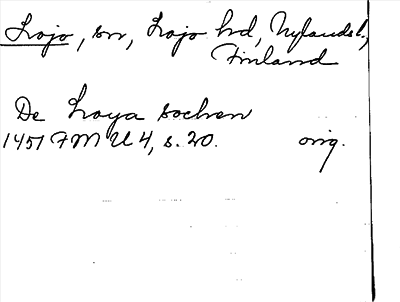 Lojo, sn, Lojo hd, Nylands l.,
Finland
De Loya sochen
1451 FMU 4, s. 20. orig.